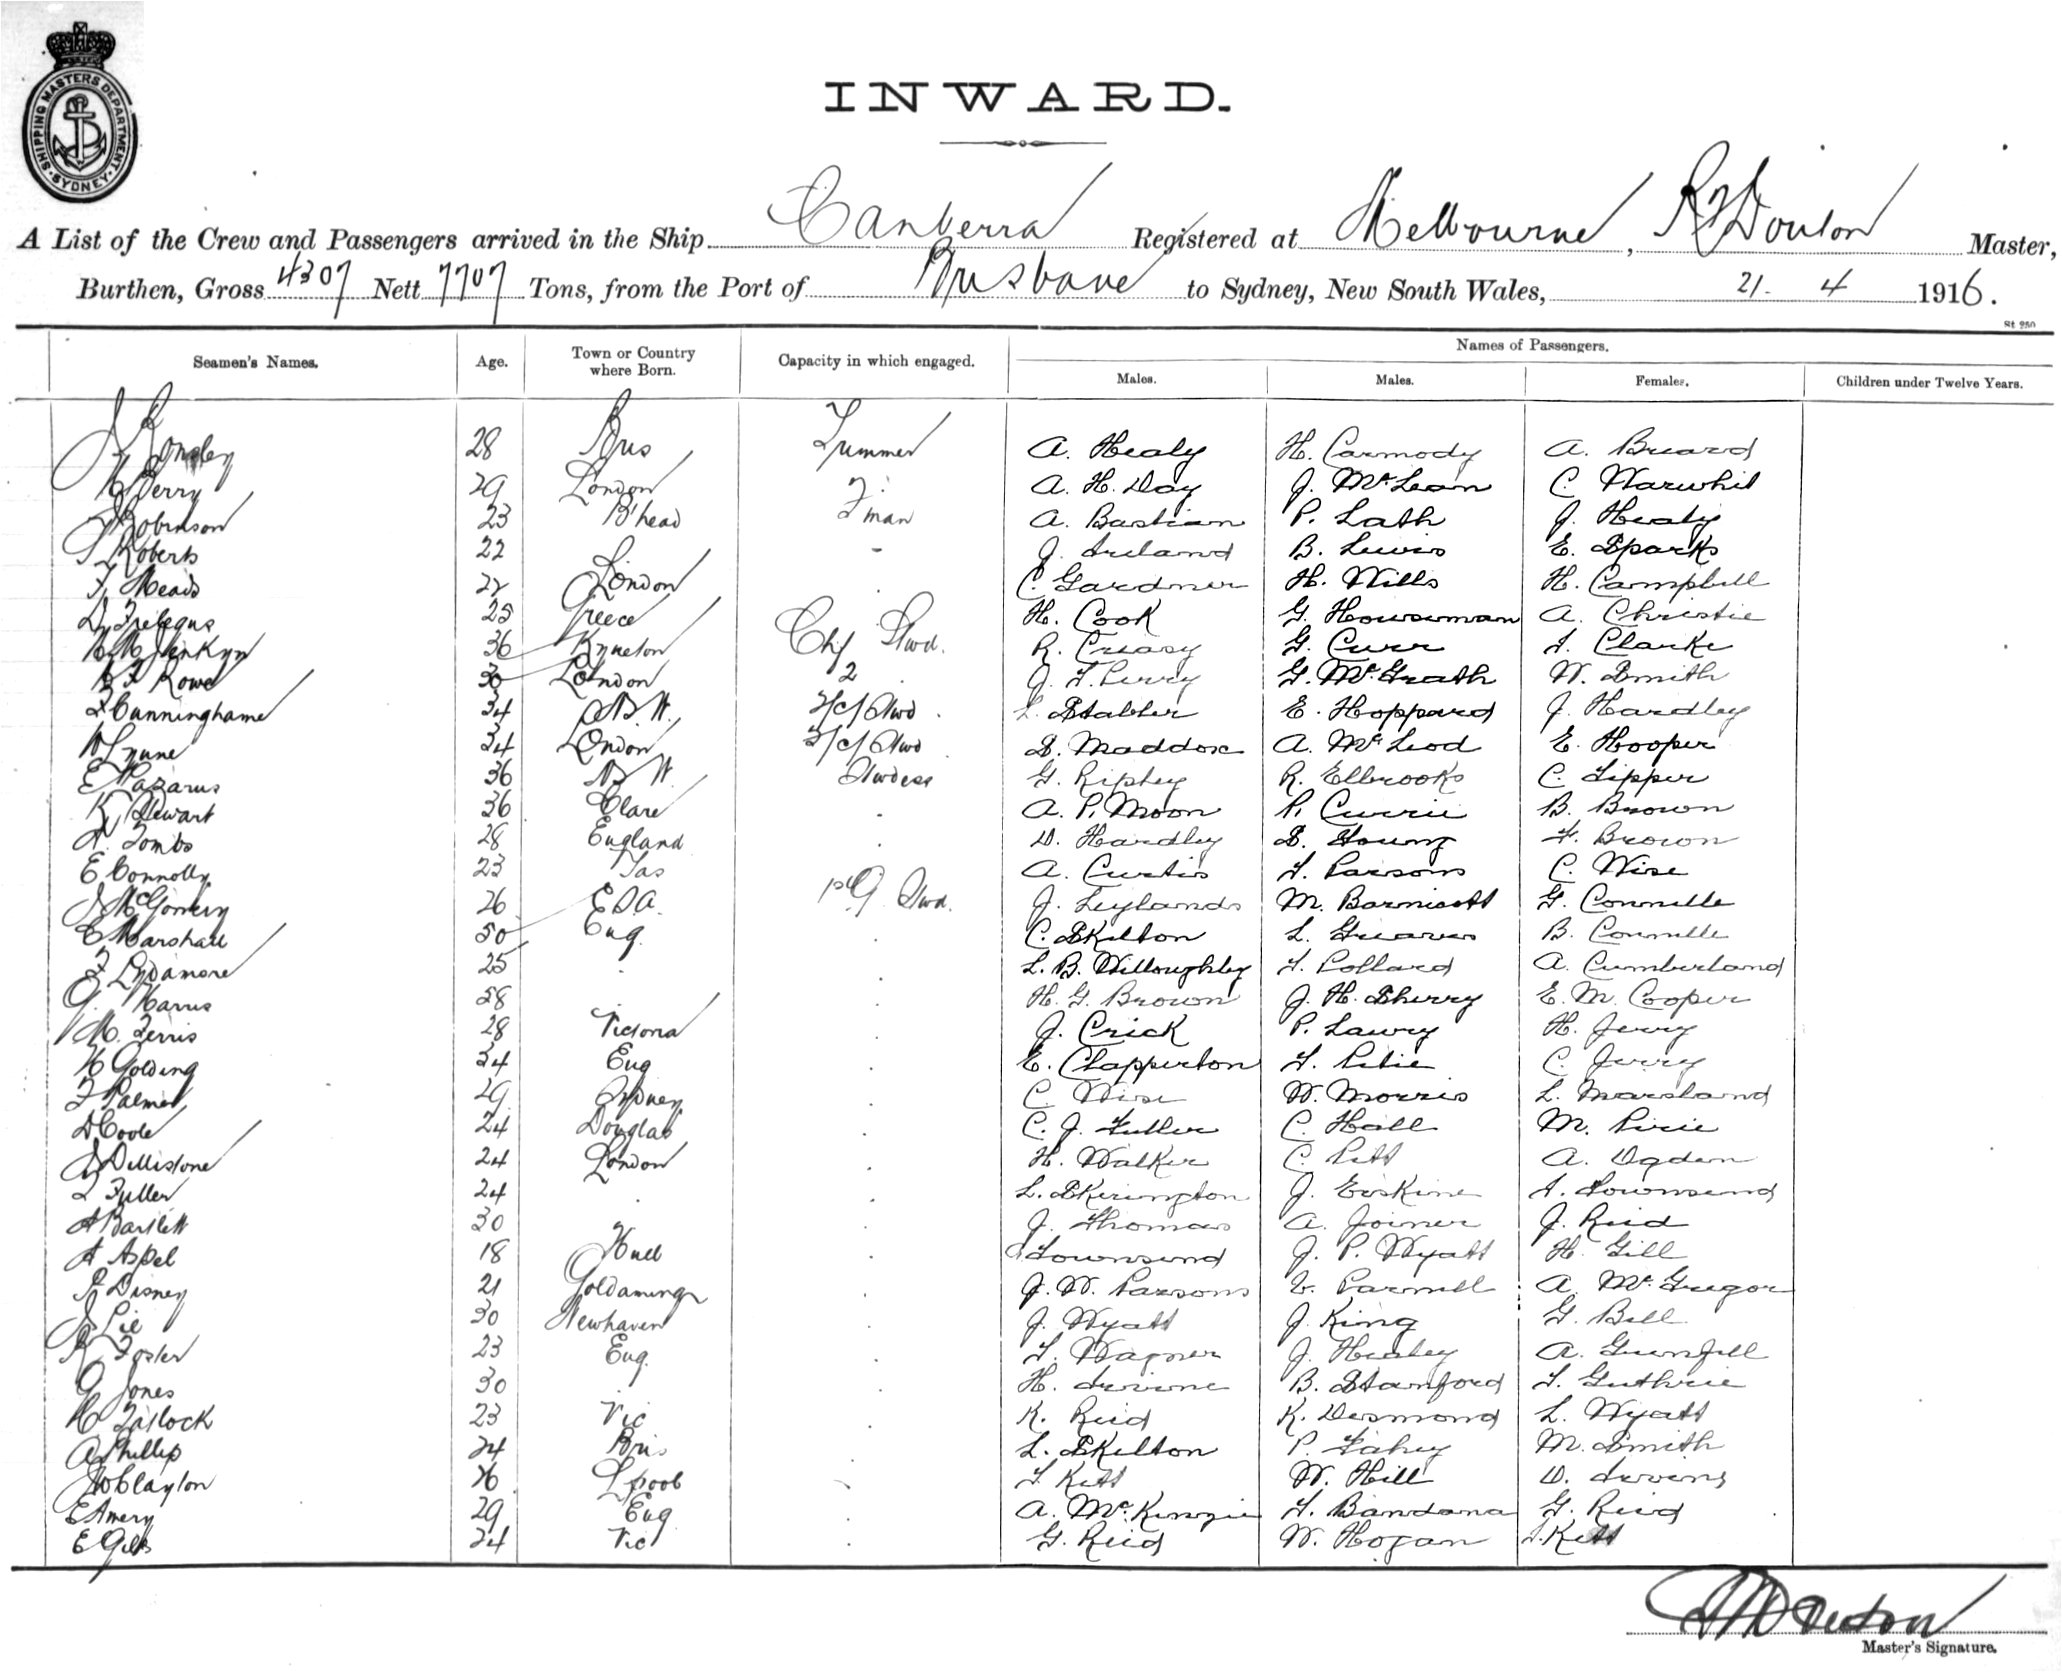 SHIPPING MASTERS DEPARTMENT
SYDNEY
INWARD.
A List of the Crew and Passengers arrived in the Ship Canberra Registered at Melbourne, Master,
Burthen, Gross 4307 Nett 7707 Tons, from the Port of Brisbane to Sydney, New South Wales, 21 - 4 1916.
St 250
Names of Passengers.
Seamen's Names. Age. Town or Country where Born. Capacity in which engaged. Males. Males. Females. Children under Twelve Years.
28 Bris Trimmer A. Healy H. Carmody A. Briard
Berry 29 London A. H. Day J. McLean C Warwhit
Robinson 23 B'head F man A. Bastian P. Lath J. Healy
Roberts 22 J. Ireland B. Lewis E. Sparks
F. Meads 22 London C. Gardner H. Wills H. Campbell
25 Greece H. Cook G. Howsman A. Christie
Jenkyn 36 Kyneton Chf Stwd. R. Creasy G. Curr F. Clarke
Rowe 30 London 2 J. F. Perry G. McGrath W. Smith
Cunninghame 34 2/c/ Stwd. L. Stabler E. Hoppard J. Hardley
Lynne 34 London 2/c/ Stwd S. Maddox A. McLeod E. Hooper
E Lazarus 36 Stwdess G. Ripley R. Elbrooks C. Tipper
K. Dewart 36 Clare A. P. Moon P. Currie B. Brown
A. Tombs 28 England D. Hardley S. Young F. Brown
E Connolly 23 Tas A. Curtis F. Parsons C. Wise
26 Stwd. J. Leylands M. Barnicott G. Connelle
C Marshall 50 Eng. C. Skelton L. Greaves B. Connelle
F Lydamore 25 L. B. Willoughby F. Pollard A. Cumberland
G. Harris 28 H. G. Brown J. H. Sherry E. M. Cooper
M. Ferris 28 Victoria J. Crick P. Lawry H. Jerry
H Golding 34 Eng E. Clapperton F. Petie C. Jerry
F Palmer 29 Sydney C. Wise W. Morris L. Marsland
Coole 24 Douglas C. J. Fuller C. Hall M. Pirie
J Dillistone 24 London H. Walker C. Pitt A. Ogden
L Fuller 24 L. Skerington J. Erskine F. Townsend
A Bartlett 30 J. Thomas A. Joiner J. Reid
A Aspel 18 Hull Townsend J. P. Wyatt H. Gill
Disney 21 Goldaming J. W. Parsons Parnell A. McGregor
J Lie 30 Newhaven J. Wyatt J. King G. Bell
R Foster 23 Eng. F. Wagner J. Healey A. Grenfell
G Jones 30 H. Irvine B. Stanford F. Guthrie
H Tatlock 23 Vic K. Reid K. Desmond L. Wyatt
A Phillip 24 Bris L. Skelton P. Fahey M. Smith
Clayton 26 Lpool F. Kett W. Hill D. Irving
E Amery 29 Eng A. McKenzie F. Bandana G. Reid
E Giles 24 Vic G. Reid W. Hogan F. Kett
Master's Signature.